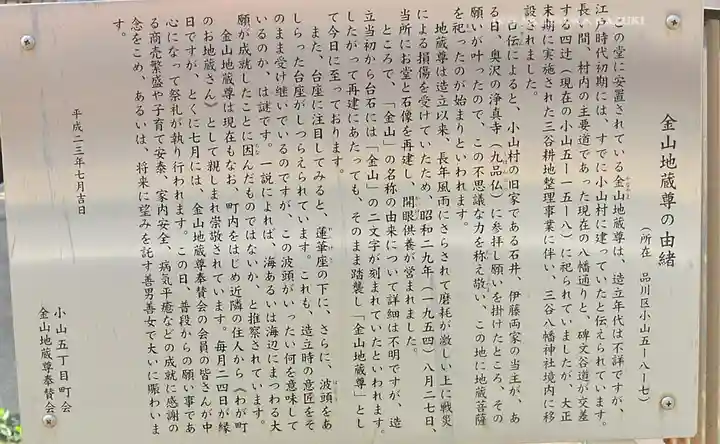 金山地蔵尊の由緒
（所在　品川区小山五ー八ー七）
この堂に安置されている金山地蔵尊は、造立年代は不詳ですが、
江戸時代初期には、すでに小山村に建っていたと伝えられています。
長い間、村内の主要道であった現在の八幡通りと、碑文谷道が交差
する四辻（現在の小山五ー一五ー八）に祀られていましたが、大正
末期に実施された三谷耕地整理事業に伴い、三谷八幡神社境内に移
設されました。
口伝によると、小山村の旧家である石井、伊藤両家の当主が、あ
る日、奥沢の浄真寺（九品仏）に参拝し願いを掛けたところ、その
願いが叶ったので、この不思議な力を称え敬い、この地に地蔵菩薩
を祀ったのが始まりといわれます。
地蔵尊は造立以来、長年風雨にさらされて磨耗が激しい上に戦災
による損傷を受けていたため、昭和二九年（一九五四）八月二七日、
当所にお堂と石像を再建し、開眼供養が営まれました。
ところで、「金山」の名称の由来について詳細は不明ですが、造
立当初から台石には「金山」の二文字が刻まれていたといわれます。
したがって再建にあたっても、そのまま踏襲し「金山地蔵尊」とし
て今日に至っております。
また、台座に注目してみると、蓮華座の下に、さらに、波頭をあ
しらった台座がしつらえられています。これも、造立時の意匠をそ
のまま受け継いでいるのですが、この波頭がいったい何を意味して
いるのか、は謎です。一説によれば、海あるいは海辺にまつわる大
願が成就したことに因んだものではないか、と推察されています。
金山地蔵尊は現在もなお、町内をはじめ近隣の住人から《わが町
のお地蔵さん》として親しまれ崇敬されています。毎月二四日が縁
日ですが、とくに七月には、金山地蔵尊奉賛会の会員の皆さんが中
心になって祭礼が執り行われます。この日、普段からの願い事であ
る商売繁盛や子育て安泰、家内安全、病気平癒などの成就に感謝の
念をこめ、あるいは、将来に望みを託す善男善女で大いに賑わいま
す。
平成二三年七月吉日
小山五丁目町会
金山地蔵尊奉賛会